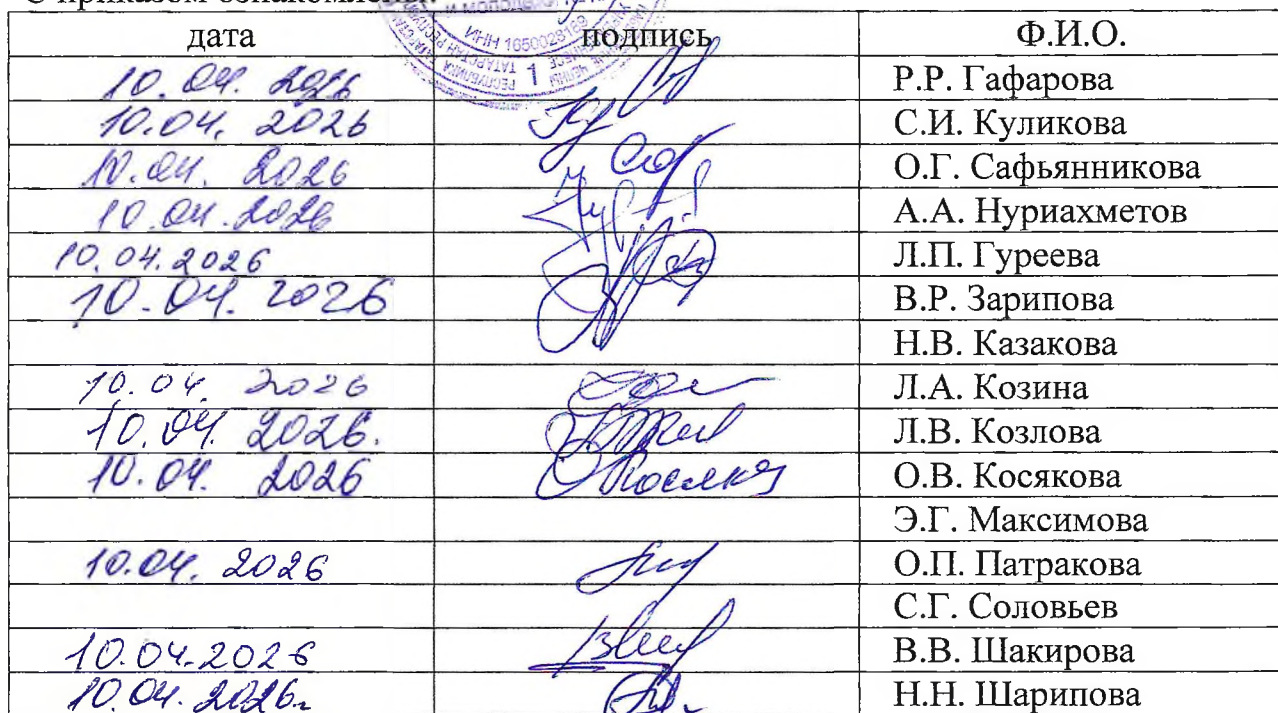 С приказом ознакомлены:
дата подпись Ф.И.О.
10.04.2026 Р.Р. Гафарова
10.04.2026 С.И. Куликова
10.04.2026 О.Г. Сафьянникова
10.04.2026 А.А. Нуриахметов
10.04.2026 Л.П. Гуреева
10.04.2026 В.Р. Зарипова
Н.В. Казакова
10.04.2026 Л.А. Козина
10.04.2026. Л.В. Козлова
10.04.2026 О.В. Косякова
Э.Г. Максимова
10.04.2026 О.П. Патракова
С.Г. Соловьев
10.04.2026 В.В. Шакирова
10.04.2026г. Н.Н. Шарипова